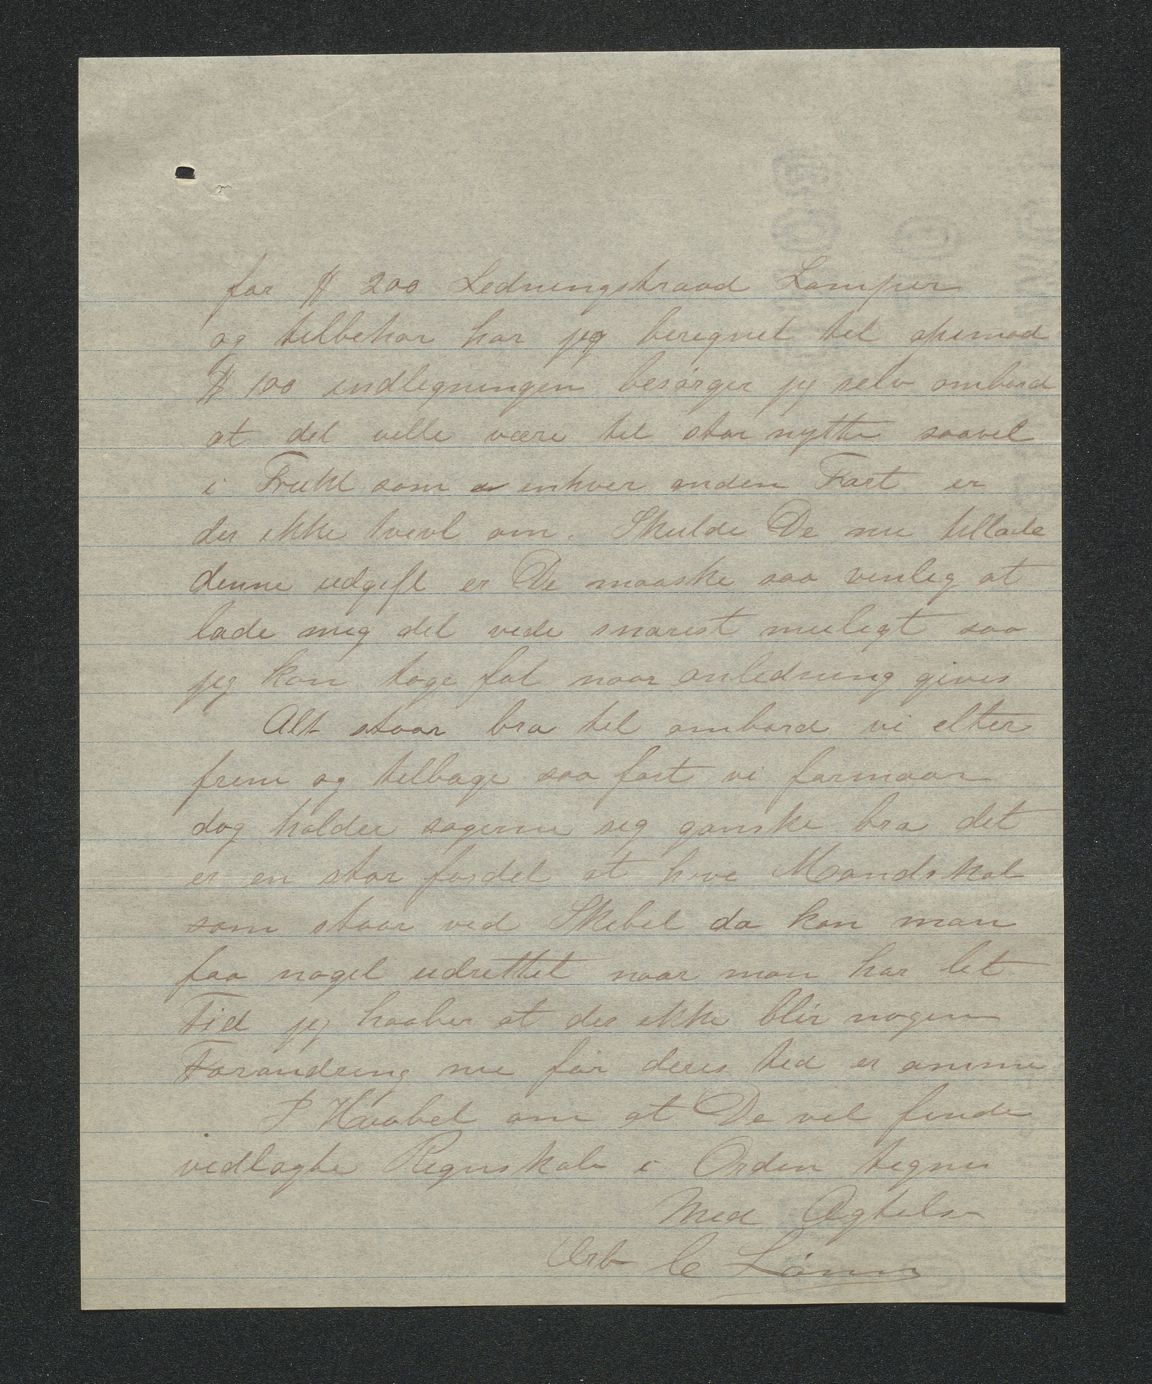 for $ 200 Ledningstraad Lamper
og tilbehør har jeg beregnet til
$ 100 indlegningen besørger jeg selv ombord
at det ville være til stor nytte saavel
i Frukt som enhver anden Fart er
der ikke tvivl om. Skulde De nu tillade
denne udgift er De maaske saa venlig at
lade mig det vide snarest muligt saa
jeg kan tage fat naar anledning gives
Alt staar bra til ombord vi elter
frem og tilbage saa fort vi formaar
dog holder sagerne seg ganske bra det
er en stor fordel at have Mandskab
som staar ved Skibet da kan man
faa noget udrettet naar man har let
Tid jeg haaber at der ikke blir nogen
Forandring nu før deres tid er omme
I Haabet om at De vil finde
vedlagte Regnskab i Orden tegner
Med Agtelse
Arb C Lønn